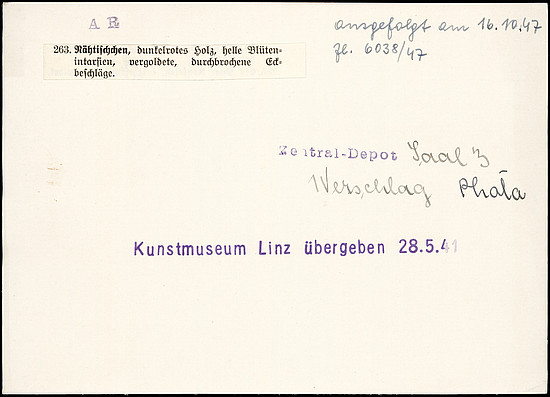 A R
ausgefolgt am 16.10.47
Zl. 6038/47
263. Nähtischchen, dunkelrotes Holz, helle Blüten-
intarsien, vergoldete, durchbrochene Eck-
beschläge.
Zentral-Depot Saal 3
Werschlag Phala
Kunstmuseum Linz übergeben 28.5.41